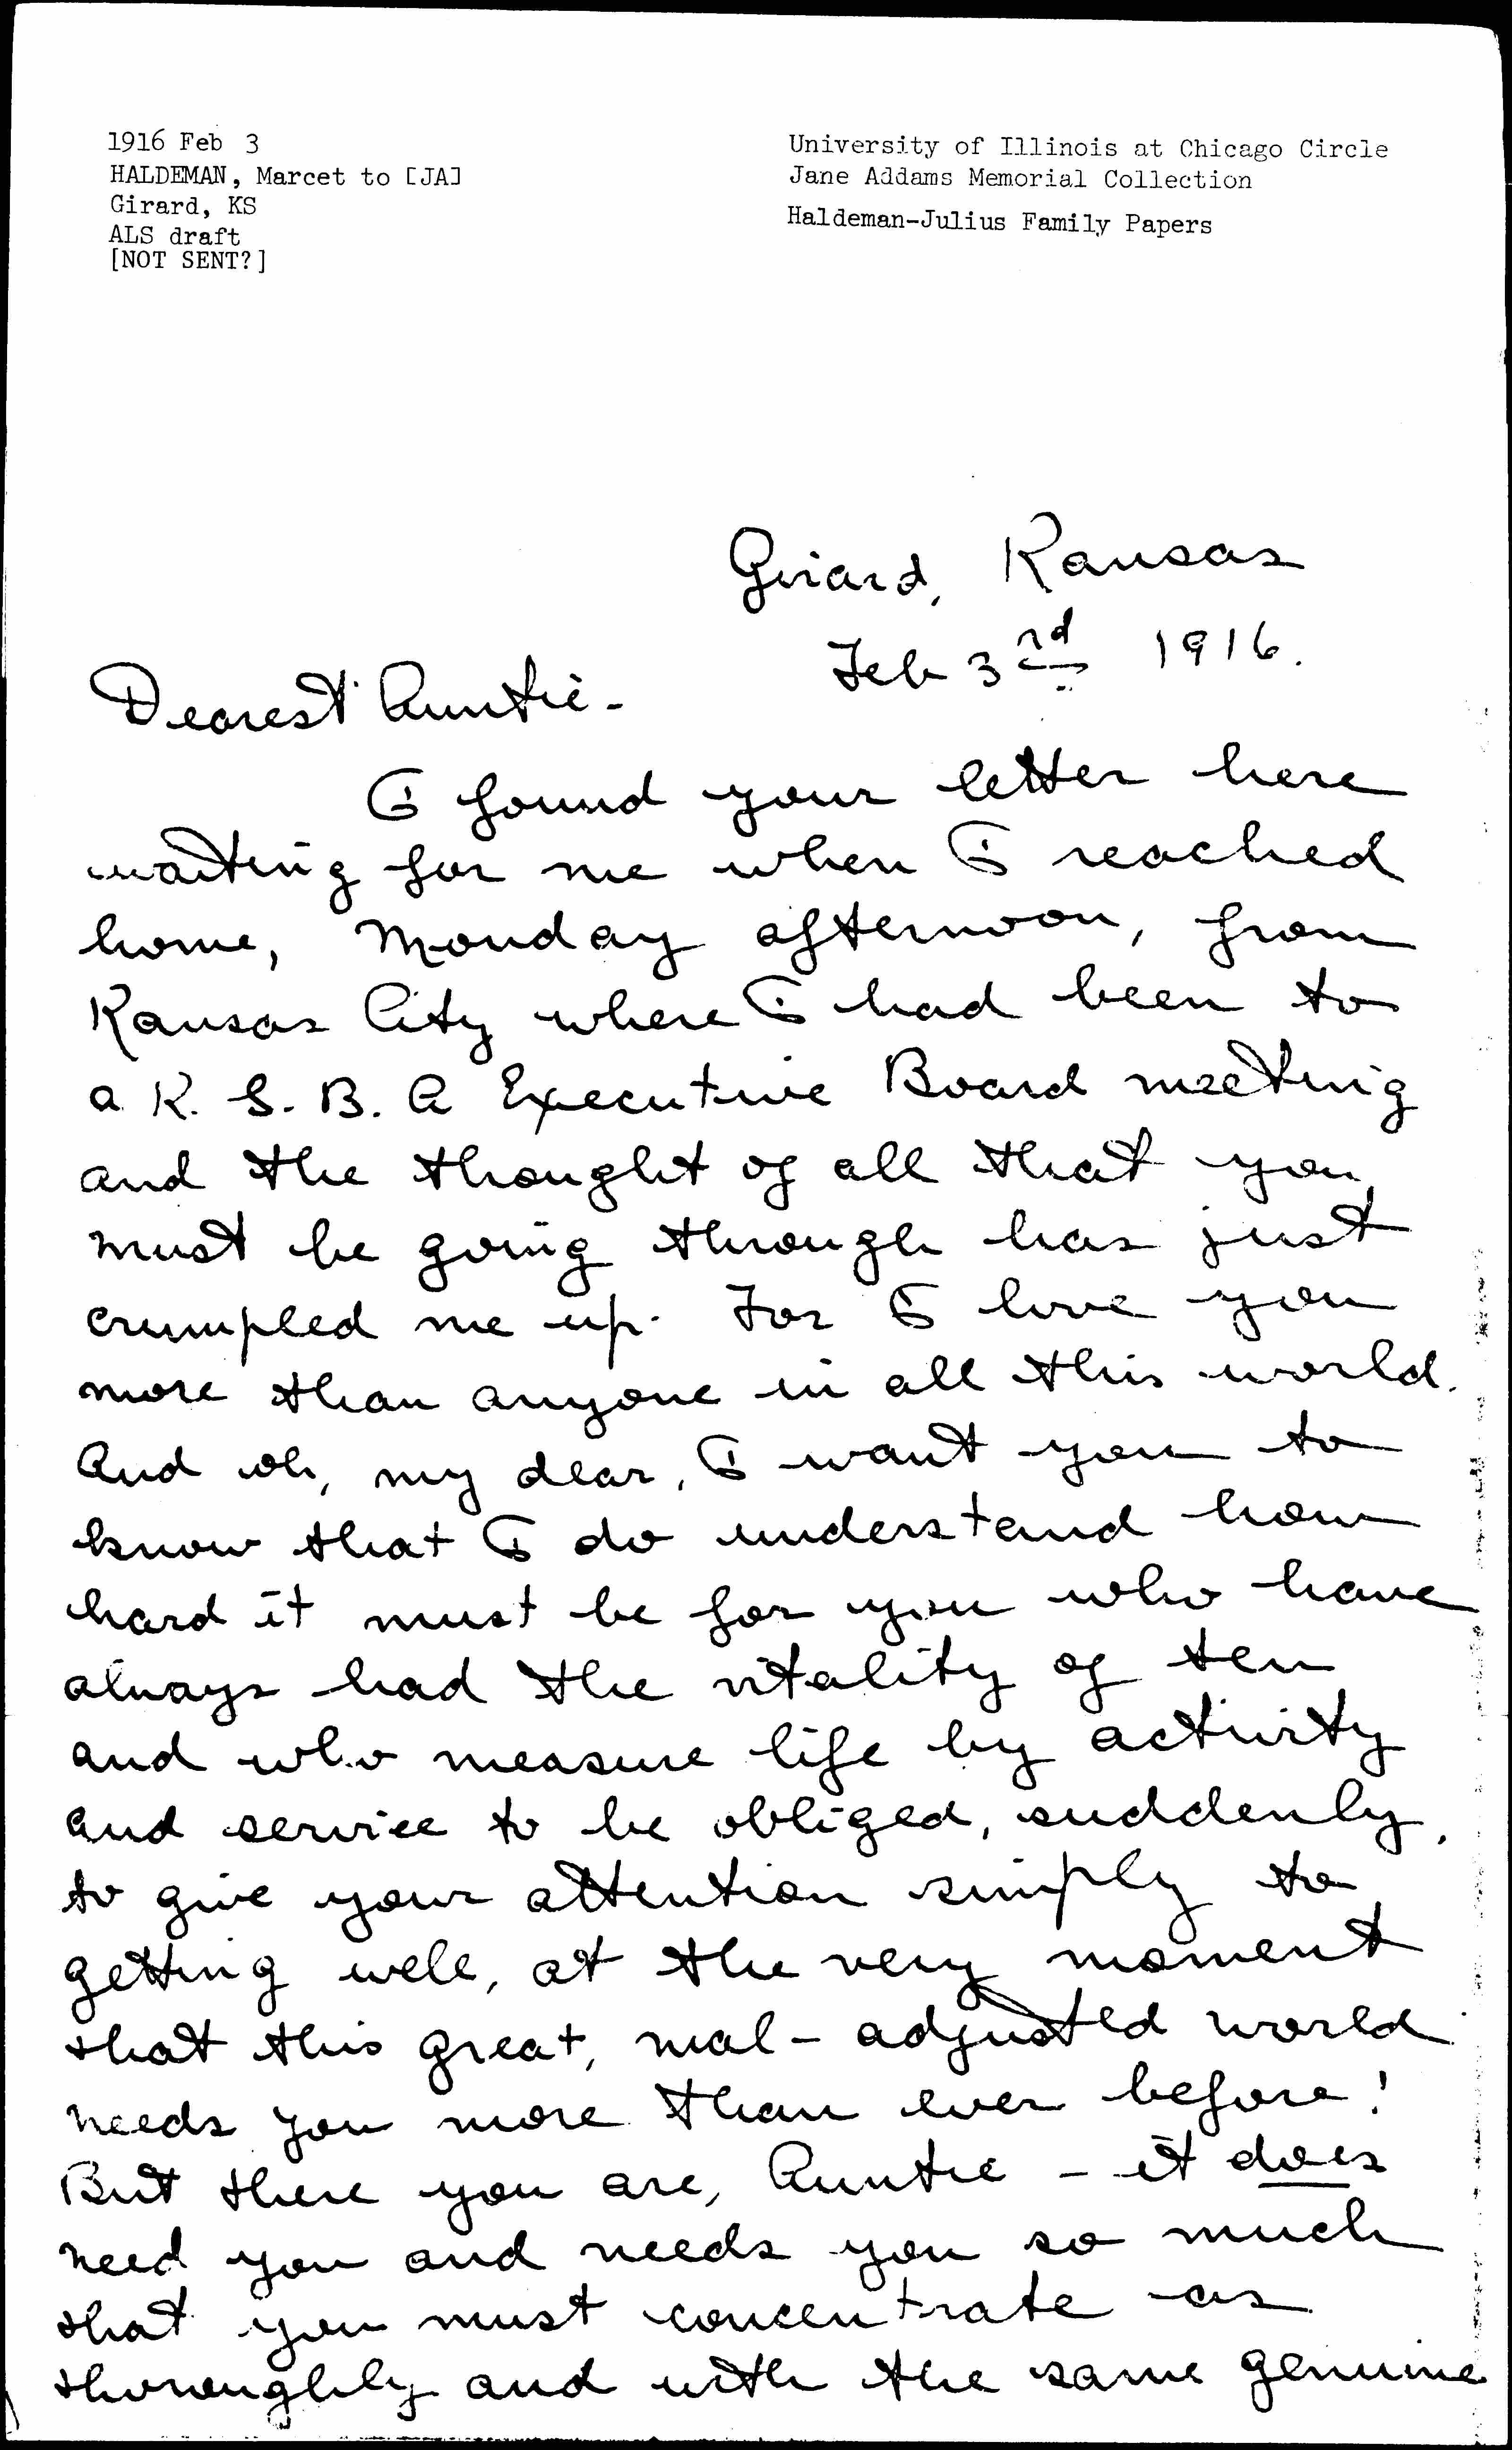 1916 Feb 3
HALDEMAN, Marcet to [JA]
Girard, KS
ALS draft
[NOT SENT?]
University of Illinois at Chicago Circle
Jane Addams Memorial Collection
Haldeman-Julius Family Papers
Girard, Kansas
Feb 3rd 1916.
Dearest Auntie-
I found your letter here
waiting for me when I reached
home, Monday afternoon, from
Kansas City where I had been to
a K. S. B. A Executive Board meeting
and the thought of all that you
must be going through has just
crumpled me up. For I love you
more than anyone in all this world.
And oh, my dear, I want you to
know that I do understand how
hard it must be for you who have
always had the vitality of ten
and who measure life by activity
and service to be obliged, suddenly,
to give your attention simply to
getting well, at the very moment
that this great, mal-adjusted world
needs you more than ever before!
But there you are, Auntie - it does
need you and needs you so much
that you must concentrate as
thoroughly and with the same genuine